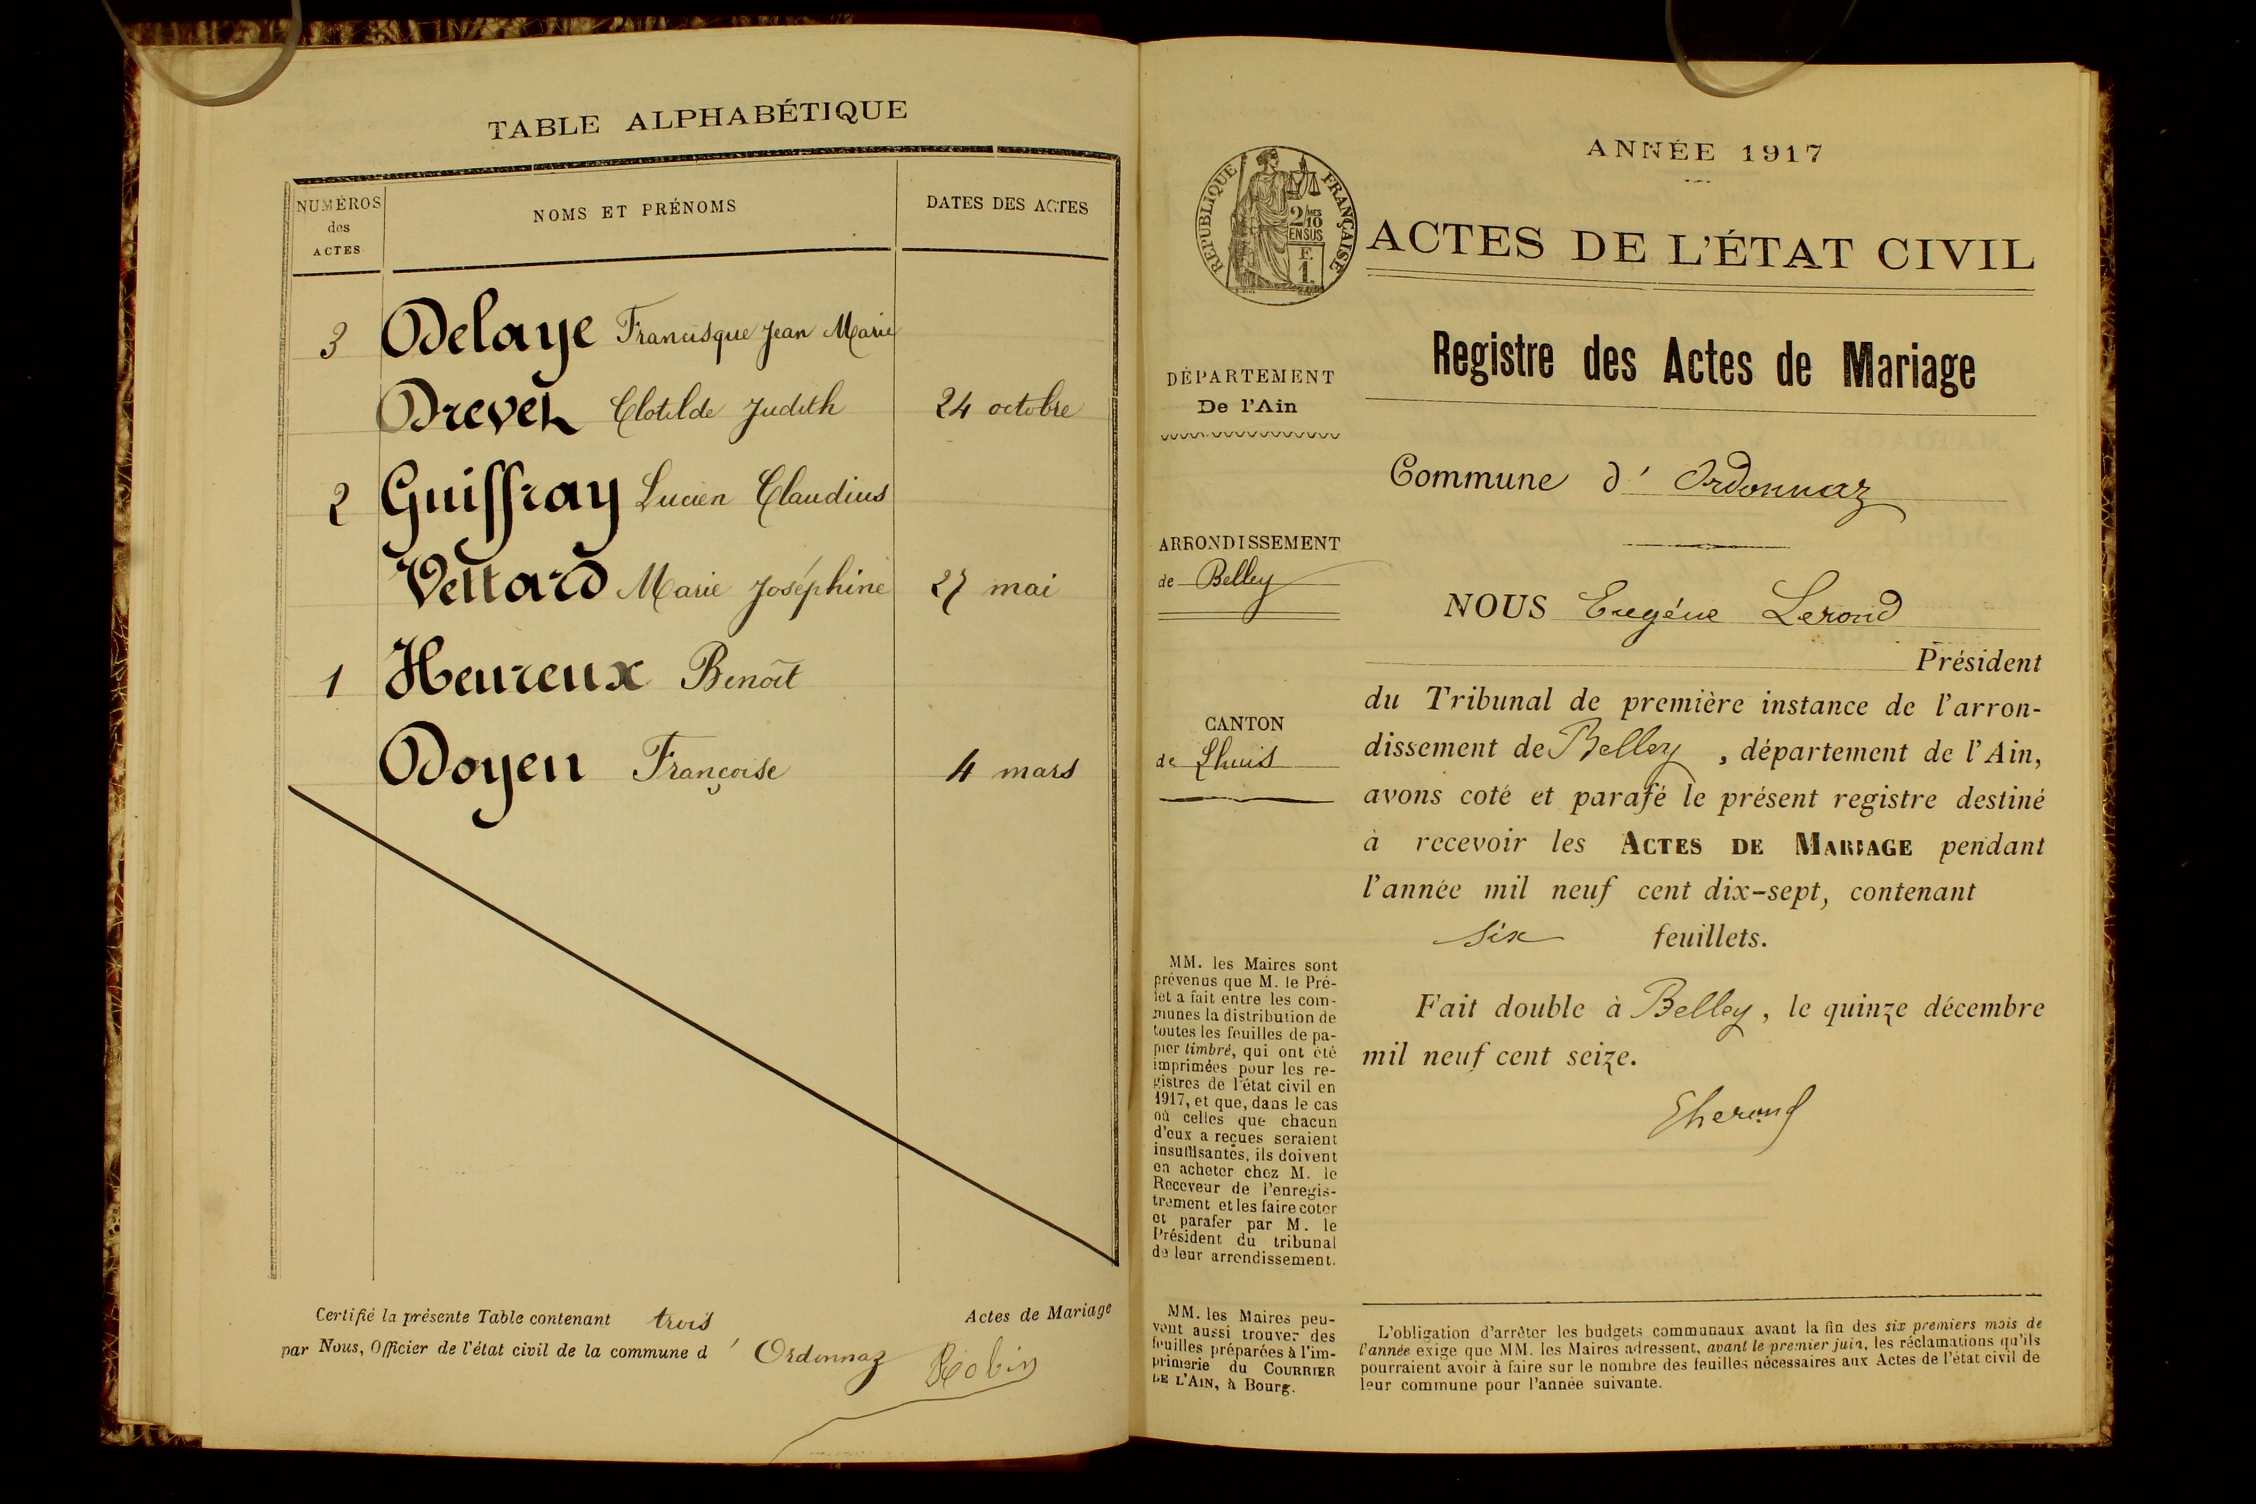 TABLE ALPHABÉTIQUE
NUMÉROS
des
ACTES
NOMS ET PRÉNOMS
DATES DES ACTES
3 Delaye Francisque Jean Marie
Drevet Clotilde Judith 24 octobre
2 Guiffray Lucien Claudius
Vettard Marie Joséphine 27 mai
1 Heureux Benoît
Doyen Françoise 4 mars
Certifié la présente Table contenant trois Actes de Mariage
par Nous, Officier de l'état civil de la commune d' Ordonnaz
Robin
ANNÉE 1917
RÉPUBLIQUE FRANÇAISE
2/10 MES
EN SUS
F.
1.
ACTES DE L'ÉTAT CIVIL
Registre des Actes de Mariage
DÉPARTEMENT
De l'Ain
Commune d' Ordonnaz
ARRONDISSEMENT
de Belley
CANTON
de Lhuis
NOUS Eugène Lerond
Président
du Tribunal de première instance de l'arron-
dissement de Belley, département de l'Ain,
avons coté et parafé le présent registre destiné
à recevoir les ACTES DE MARIAGE pendant
l'année mil neuf cent dix-sept, contenant
six feuillets.
Fait double à Belley, le quinze décembre
mil neuf cent seize.
MM. les Maires sont
prévenus que M. le Pré-
fet a fait entre les com-
munes la distribution de
toutes les feuilles de pa-
pier timbré, qui ont été
imprimées pour les re-
gistres de l'état civil en
1917, et que, dans le cas
où celles que chacun
d'eux a reçues seraient
insuffisantes, ils doivent
en acheter chez M. le
Receveur de l'enregis-
trement et les faire coter
et parafer par M. le
Président du tribunal
de leur arrondissement.
MM. les Maires peu-
vent aussi trouver des
feuilles préparées à l'im-
primerie du COURRIER
DE L'AIN, à Bourg.
L'obligation d'arrêter les budgets communaux avant la fin des six premiers mois de
l'année exige que MM. les Maires adressent, avant le premier juin, les réclamations qu'ils
pourraient avoir à faire sur le nombre des feuilles nécessaires aux Actes de l'état civil de
leur commune pour l'année suivante.